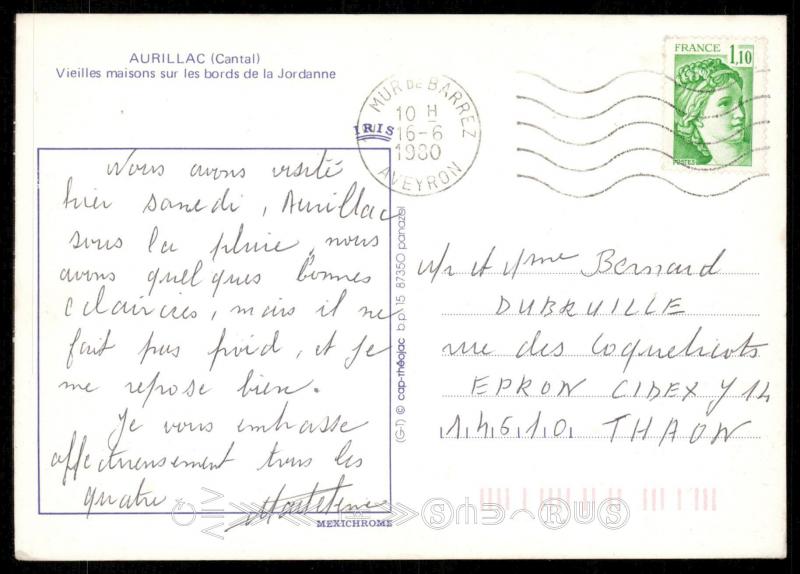 AURILLAC (Cantal)
Vieilles maisons sur les bords de la Jordanne
IRIS
MUR DE BARREZ
10 H
16-6
1980
AVEYRON
FRANCE
1,10
POSTES
Nous avons visité
hier samedi, Aurillac
sous la pluie, nous
avons quelques bonnes
éclaircies, mais il ne
fait pas froid, et je
me repose bien.
Je vous embrasse
affectueusement tous les
quatre
MEXICHROME
(G-1) © cap-théojac b.p. 15 87350 panazol
Mr et Mme Bernard
DUBRUILLE
rue des Coquelicots
EPRON CIDEX Y 14
14610 THAON